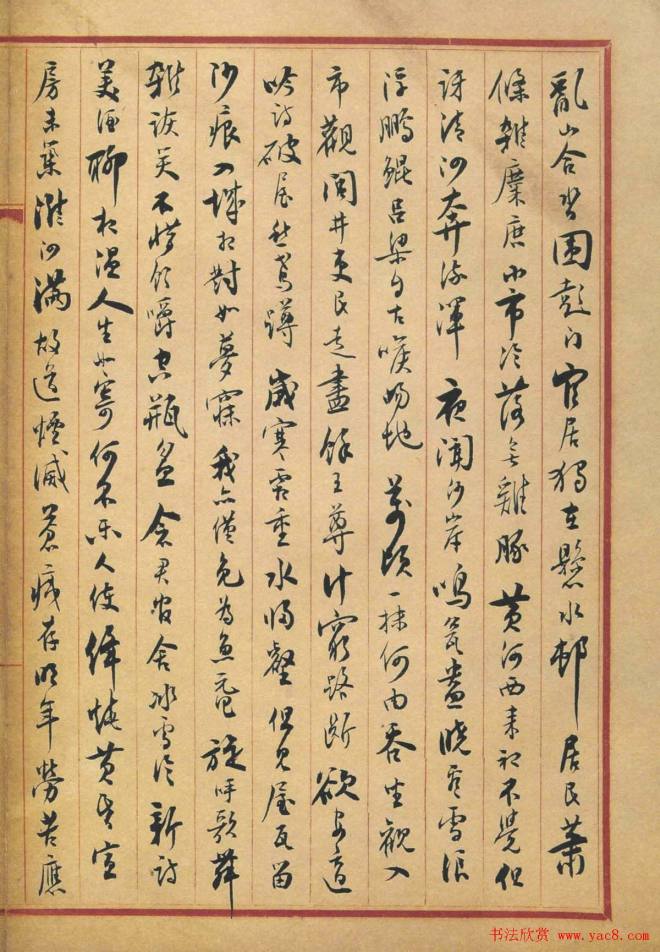 亂山合沓圍彭門官居獨在懸水邨居民蕭
條雜麋鹿小市冷落無雞豚黃河西來初不覺但
訝清泗奔流渾夜聞沙岸鳴瓮盎曉看雪浪
浮鵬鯤呂梁自古喉吻地萬頃一抹何由吞坐觀入
市觀閭井吏民走盡餘王尊計窮路斷欲安適
吟詩破屋愁鳶蹲歲寒霜重水歸壑但見屋瓦留
沙痕入城相對如夢寐我亦僅免為魚黿旋呼歌舞
雜詼笑不惜飲釂空瓶盆念君官舍冰雪冷新詩
美酒聊相溫人生如寄何不樂任使絳燒黃昏宣
房未築淮泗滿故道煙滅蒼痍存明年勞苦應
书法欣赏 www.yac8.com